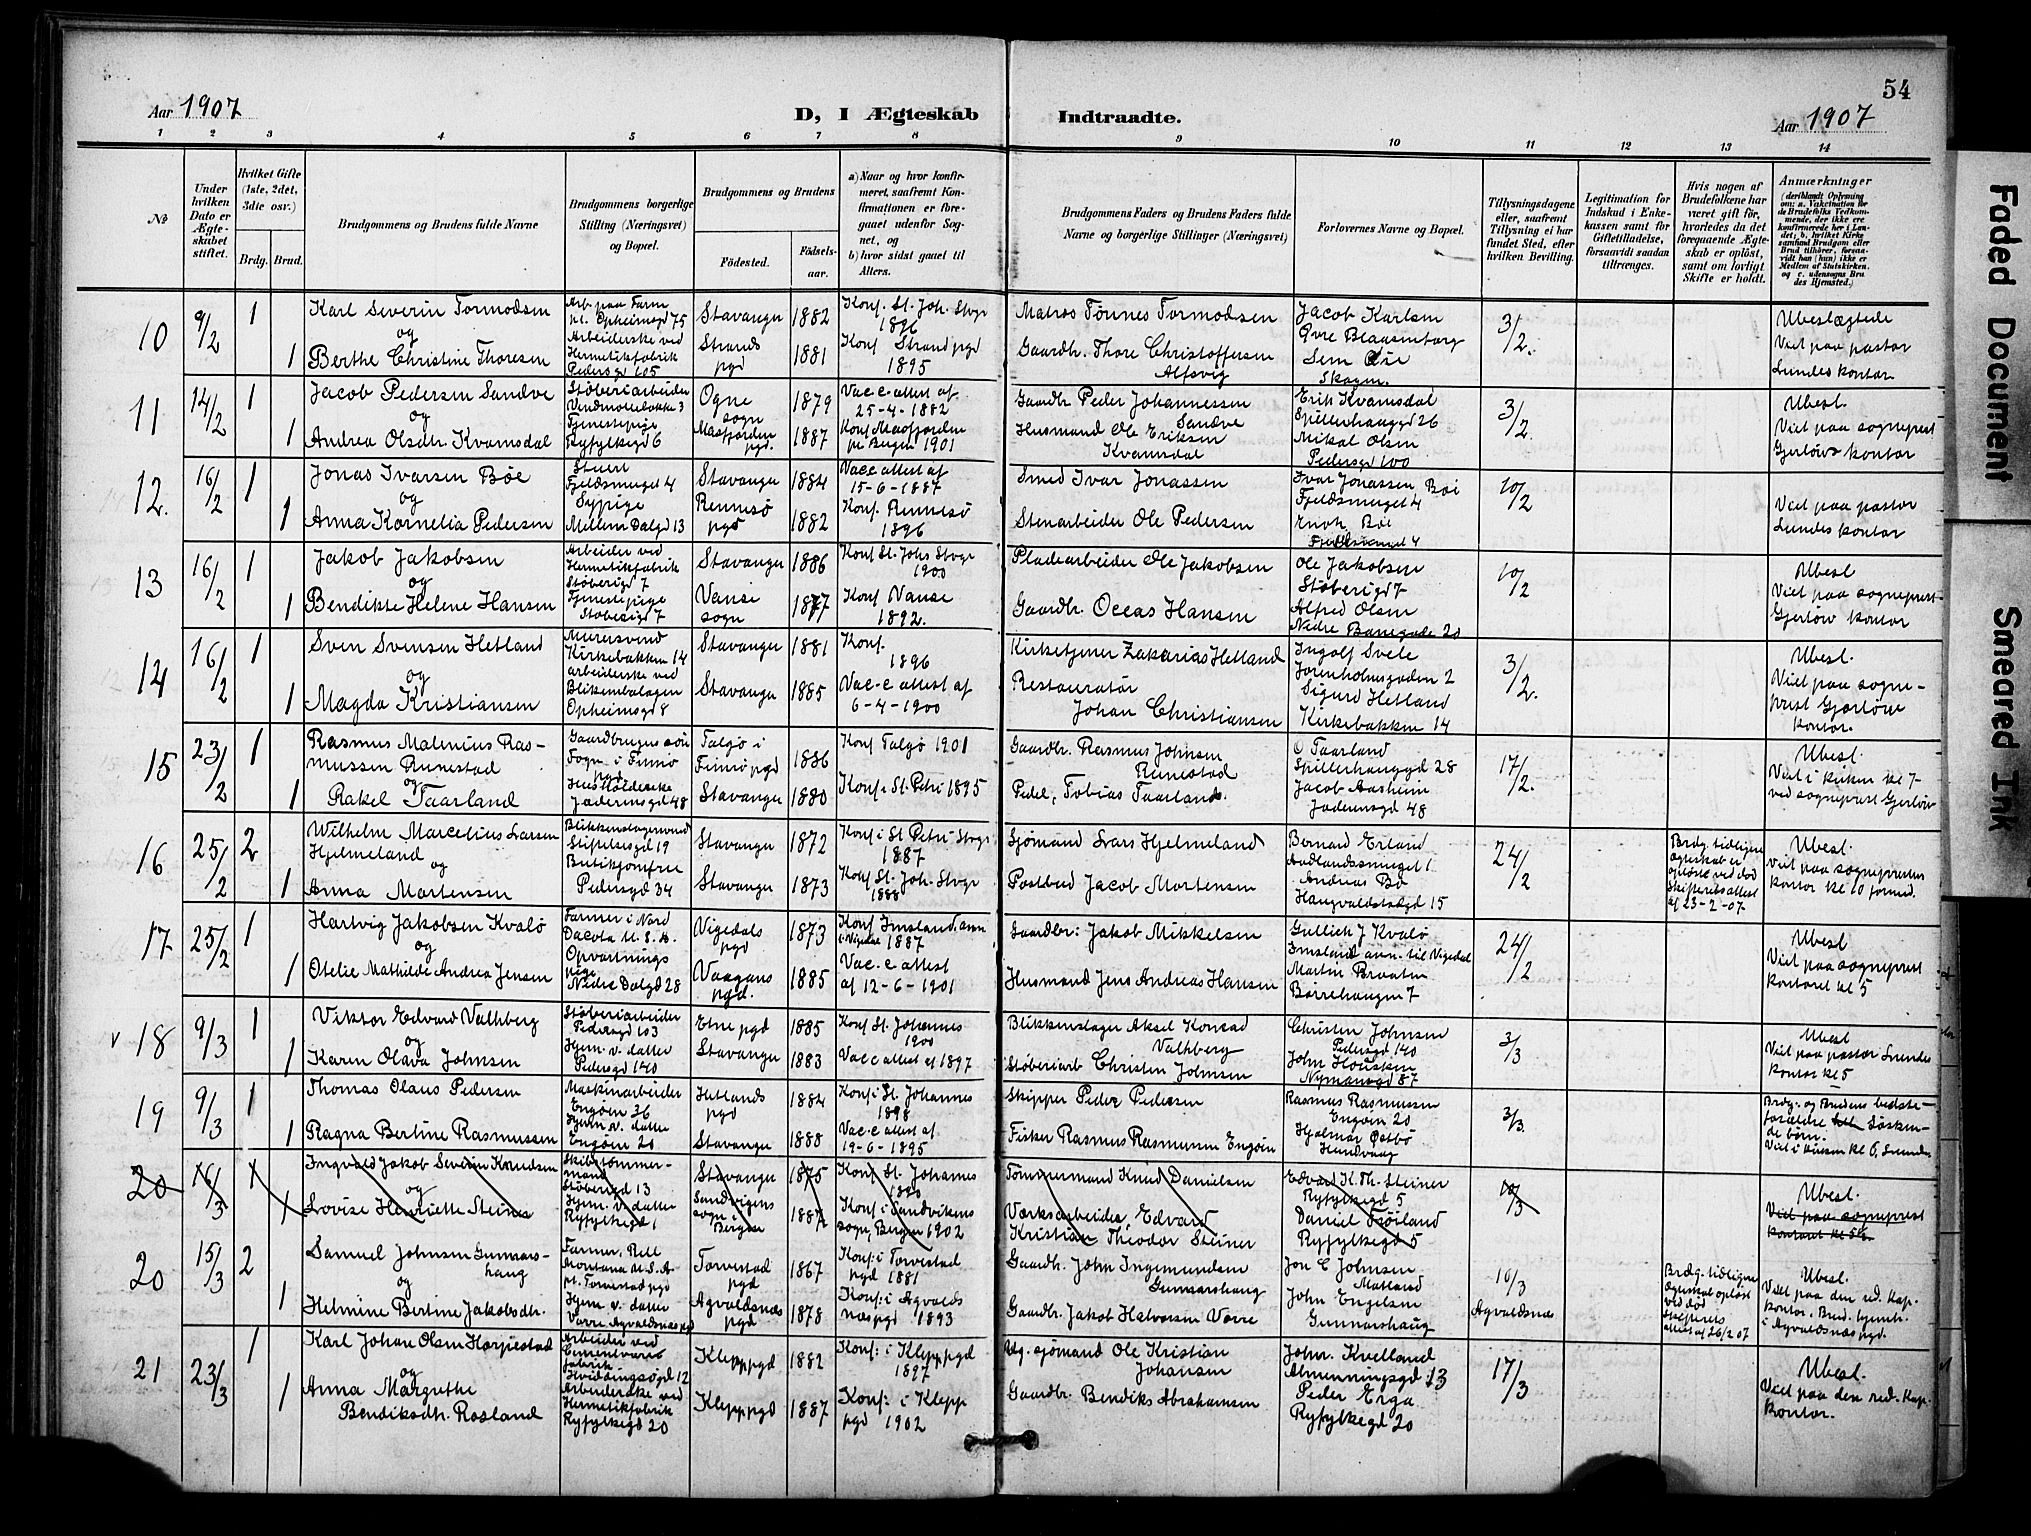 54
Aar 1907
D, I Ægteskab Indtraadte.
Aar 1907
1 2 3 4 5 6 7 8 9 10 11 12 13 14
№
Under
hvilken
Dato er
Ægte-
skabet
stiftet.
Hvilket Gifte
(1ste, 2det,
3die osv.)
Brdg. Brud.
Brudgommens og Brudens fulde Navne
Brudgommens borgerlige
Stilling (Næringsvei)
og Bopæl.
Brudgommens og Brudens
Fødested.
Fødsels-
aar.
a) Naar og hvor konfir-
meret, saafremt Kon-
firmationen er fore-
gaaet udenfor Sog-
net, og
b) hvor sidst gaaet til
Alters.
Brudgommens Faders og Brudens Faders fulde
Navne og borgerlige Stillinger (Næringsvei)
Forlovernes Navne og Bopæl.
Tillysningsdagene
eller, saafremt
Tillysning ei har
fundet Sted, efter
hvilken Bevilling.
Legitimation for
Indskud i Enke-
kassen samt for
Giftetilladelse,
forsaavidt saadan
tiltrænges.
Hvis nogen af
Brudefolkene har
været gift før,
hvorledes da det
foregaaende Ægte-
skab er opløst,
samt om lovligt
Skifte er holdt.
Anmærkninger
(deriblandt Oplysning
om: a. Vakcination for
de Brudefolks Vedkom-
mende, der ikke ere
konfirmerede her i Lan-
det; b. hvilket Kirke
samfund Brudgom eller
Brud tilhører, forsaa-
vidt han (hun) ikke er
Medlem af Statskirken,
og c. udensogns Bru
des Hjemsted.)
10
9/2
1
1
Karl Severin Tormodsen
og
Berthe Christine Thoresen
Arb. paa Farm
n. Opheimsgd 75
Arbeiderske ved
Hermetikfabrik
Pedersgd 105
Stavanger 1882
Strands
pgd 1881
Konf. St. Joh. Stvgr
1896
Konf Strand pgd
1895
Matros Tönnes Tormodsen
Gaardbr. Thore Christoffersen
Alfsvig
Jacob Karlsen
Øvre Blaasenborg
Sem
Skagen.
3/2.
Ubeslægtede
Viet paa pastor
Lundes kontor
11
14/2
1
1
Jacob Pedersen Sandve
og
Andrea Olsdr. Kvamsdal
Støberiarbeider
Vindmøllebakke 3
Tjenestepige
Ryfylkegd 6
Ogne
sogn 1879
Masfjorden
pgd. 1887
Vac-c-attest af
25-4-1882
Konf Masfjorden
pr Bergen 1901
Gaardbr Peder Johannessen
Sandve
Husmand Ole Eriksen
Kvamsdal
Erik Kvamsdal
Spilderhauggd 26
Mikal Olsen
Pedersgd 100
3/2.
Ubesl.
Viet paa sogneprest
Gjerløws kontor
12.
16/2
1
1
Jonas Ivarsen Bøe
og
Anna Kornelia Pedersen
Stuert
Fjeldsmuget 4
Sypige
Mellem Dalgd 13
Stavanger 1884
Rennesø
pgd 1882
Vac c attest af
15-6-1887
Konf. Rennesø
1896
Smed Ivar Jonassen
Stenarbeider Ole Pedersen
Ivar Jonassen Bøe
Fjeldsmuget 4
Enok Bøe
Fjeldsmuget 4
10/2
Viet paa pastor
Lundes kontor
13
16/2
1
1
Jakob Jakobsen
og
Bendikte Helene Hansen
Arbeider ved
Hermetikfabrik
Støberigd 7
Tjenestepige
Støberigd 7
Stavanger 1886
Vanse
sogn 1877
Konf St. Johs Stvgr
1900
Konf Vanse
1892.
Pladearbeider Ole Jakobsen
Gaardbr. Oceas Hansen
Ole Jakobsen
Støberigd 7
Alfred Olsen
Nedre Banegade 20
10/2
Ubesl
Viet paa sogneprest
Gjerløw kontor
14
16/2
1
1
Sven Svensen Hetland
og
Magda Kristiansen
Murersvend
Kirkebakken 14
arbeiderske ved
Blikemballagen
Opheimsgd 8
Stavanger 1881
Stavanger 1885
Konf.
1896
Vac-c attest af
6-4-1900
Kirketjener Zakarias Hetland
Restauratør
Johan Christiansen
Ingolf Svele
Jorenholmsgaden 2
Sigurd Hetland
Kirkebakken 14
3/2.
Ubesl.
Viet paa sogne-
prest Gjerløws
kontor.
15
23/2
1
1
Rasmus Malenius Ras-
mussen Runestad
og
Rakel Taarland
Gaardbrugers søn
Fogn i Finnø
pgd
Husholderske
Jæderensgd 48
Talgø i
Finnø pgd 1886
Stavanger 1880
Konf Talgø 1901
Konf. St. Petri 1895
Gaardbr. Rasmus Johnsen
Runestad
Pedel, Tobias Taarland.
O Taarland
Spilderhauggd 28
Jacob Aasheim
Jæderensgd 48
17/2.
Ubesl.
Viet i kirken kl 7
ved sogneprest Gjerløw
16
25/2
2
1
Wilhelm Marcelius Larsen
Hjelmeland
og
Anna Mortensen
Blikkenslagersvend
Stiftelsesgd 19
Butikjomfru
Pedersgd 34
Stavanger 1872
Stavanger 1873
Konf i St Petri Stvgr
1887
Konf St. Joh. Stvgr
1888
Sjømand Lars Hjelmeland
Postbud Jacob Mortensen
Bernard Erland
Aadlandssmuget 1
Andreas Bø
Haugvaldstadgd 15
24/2
Brdg. tidligere
ægteskab er
opløst ved død
Skifterets attest
af 23-2-07.
Ubesl.
Viet paa sogneprestens
kontor kl 10 formd.
17
25/2
1
1
Hartvig Jakobsen Kvalø
og
Otelie Mathilde Andrea Jensen
Farmer i Nord
Dacota U. S. A.
Opvartnings
pige
Nedre Dalgd 28
Vigedals
pgd 1873
Vaagans
pgd. 1885
Konf Imsland, ann
i Vigedal 1887
Vac.-c attest
af 12-6-1901
Gaardbr: Jakob Mikkelsen
Husmand Jens Andreas Hansen
Gullick J Kvalø
Imsland ann. til Vigedal
Martin Braaten
Børrehaugen 7
24/2
Ubesl
Viet paa sogneprest
kontoret kl 5
v 18
9/3
1
1
Viktor Edvard Vathberg
og
Karen Olava Johnsen
Støberiarbeider
Pedersgd 103
Hjem. v. datter
Pedersgd 140
Etne pgd 1885
Stavanger 1883
Konf St. Johannes
1900
Vac c attest af 1897
Blikkenslager Aksel Konrad
Vathberg
Støberiarb Christen Johnsen
Christen Johnsen
Pedersgd 140
John Housken
Nymansgd 87
3/3
Ubesl
Viet paa pastor Lundes
kontor kl 5
19
9/3
1
1
Thomas Olaus Pedersen
Ragna Bertine Rasmussen
Maskinarbeider
Engøien 36
Hjem v. datter
Engøien 20
Hetlands
pgd 1884
Stavanger 1888
Konf i St. Johannes
1898
Vac-c attest af
19-6-1895
Skipper Peder Pedersen
Fisker Rasmus Rasmussen Engøien
Rasmus Rasmussen
Engøien 20
Hjalmar Østbø
Hundvaag
3/3
Brdg. og Brudens bedste-
forældre Søsken-
de børn.
Viet i kirken kl 6, Lunde
20
16/3
1
1
Ingvald Jakob Severin Knudsen
og
Lovise Henriette Steiner
Skibstømmer-
mand
Støberigd 13
Hjem. v. datter
Ryfylkegd 1
Stavanger 1875
Sandvigens
sogn i
Bergen 1884
Konf St. Johannes
1890
Konf i Sandvikens
sogn, Bergen 1902
Tømmermand Knud Danielsen
Værksarbeider, Edvard
Kristian Theodor Steiner
Edvard K. Th. Steiner
Ryfylkegd 5
Daniel Frøiland
Ryfylkegd 5
10/3
Ubesl.
Viet paa sogneprest
kontoret kl 5½
20
15/3
2
1
Samuel Johnsen Gunnars-
haug
og
Helmine Bertine Jakobsdtr.
Farmer, Rell
Montana U.S.A
n. Torvestad pgd
Hjem v. datter
Vorre Agvaldsnes pgd
Torvestad
pgd 1867
Agvaldsnes
pgd 1878
Konf: i Torvestad
pgd 1881
Konf: i Agvalds
nes pgd 1893
Gaardbr. John Ingemundsen
Gunnarshaug
Gaardbr. Jakob Halvorsen Vorre
Jon C Johnsen
Matland
John Engelsen
Gunnarshaug
10/3
Agvaldsnes
Brdg. tidligere
ægteskab opløst
ved død
skifterets
attest af 26/2 07
Ubesl.
Viet paa den red. Kap.
kontor. Brud. hjemh.
i Agvaldsnes pgd.
21
23/3
1
1
Karl Johan Olsen Horpestad
og
Anna Margrethe
Bendiksdtr. Rosland
Arbeider ved
Cementvare
fabrik
Hvidingsøgd 12
Arbeiderske ved
Hermetikfabrik
Ryfylkegd 20
Klepp pgd 1882
Klepp pgd 1887
Konf: i Klepp pgd
1897
Konf: i Klepp
pgd 1902
Ug. sjømand Ole Kristian
Johansen
Gaardbr. Bendiks Abrahamsen
John. Kvelland
Almenningsgd 13
Peder Erga
Ryfylkegd 20
17/3
Ubesl.
Viet paa den red. Kap.
kontor.
Faded Document
Smeared Ink